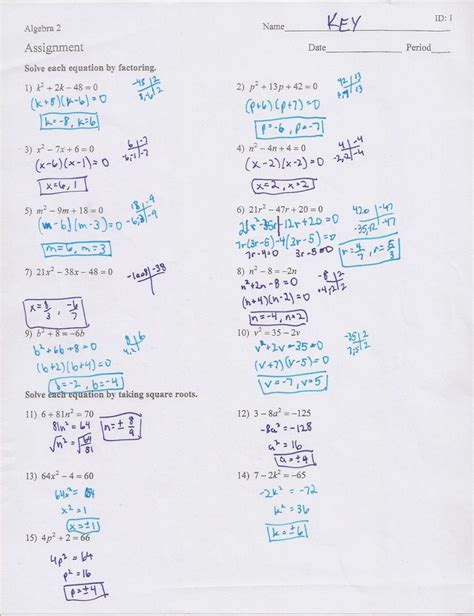 Algebra 2
Name KEY
ID: 1
Assignment
Date Period
Solve each equation by factoring.
1) k² + 2k − 48 = 0
-48 | 2
8,-6 | 2
(k+8)(k-6)=0
k=-8, k=6
2) p² + 13p + 42 = 0
42 | 13
(p+6)(p+7)=0
p=-6, p=-7
3) x² − 7x + 6 = 0
6 | -7
-6,-1 | -7
(x-6)(x-1)=0
x=6, 1
4) n² − 4n + 4 = 0
4 | -4
-2,-2 | -4
(x-2)(x-2)=0
x=2, x=2
5) m² − 9m + 18 = 0
18 | -9
-6,-3 | -9
(m-6)(m-3)=0
m=6, m=3
6) 21r² − 47r + 20 = 0
420 | -47
-35,-12 | -47
21r²-35r-12r+20=0
7r(3r-5)-4(3r-5)=0
7r-4=0 3r-5=0
r=4/7, r=5/3
7) 21x² − 38x − 48 = 0
-1008 | -38
x=8/3, -6/7
8) n² − 8 = −2n
-8 | 2
n²+2n-8=0
(n+4)(n-2)=0
n=-4, n=2
9) b² + 8 = −6b
8 | 6
4,2
b²+6b+8=0
(b+2)(b+4)=0
b=-2, b=-4
10) v² = 35 − 2v
-35 | 2
7,-5 | 2
v²+2v-35=0
(v+7)(v-5)=0
v=-7, v=5
Solve each equation by taking square roots.
11) 6 + 81n² = 70
81n² = 64
√n² = √64/81
n=± 8/9
12) 3 − 8a² = −125
-8a² = -128
a² = 16
a = ±4
13) 64x² − 4 = 60
64x² = 64
x² = 1
x=±1
14) 7 − 2k² = −65
-2k² = -72
k² = 36
k = ±6
15) 4p² + 2 = 66
4p² = 64
p² = 16
p=±4